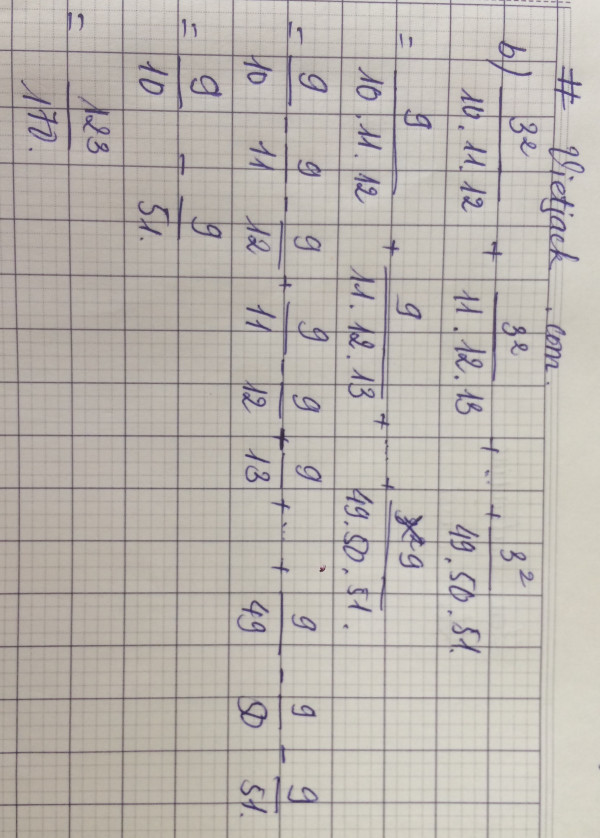 # Vietjack.com.
b) 3²/10.11.12 + 3²/11.12.13 + ... + 3²/49.50.51.
= 9/10.11.12 + 9/11.12.13 + ... + 9/49.50.51.
= 9/10 - 9/11 - 9/12 + 9/11 - 9/12 + 9/13 + ... + 9/49 - 9/50 - 9/51.
= 9/10 - 9/51.
= 123/170.